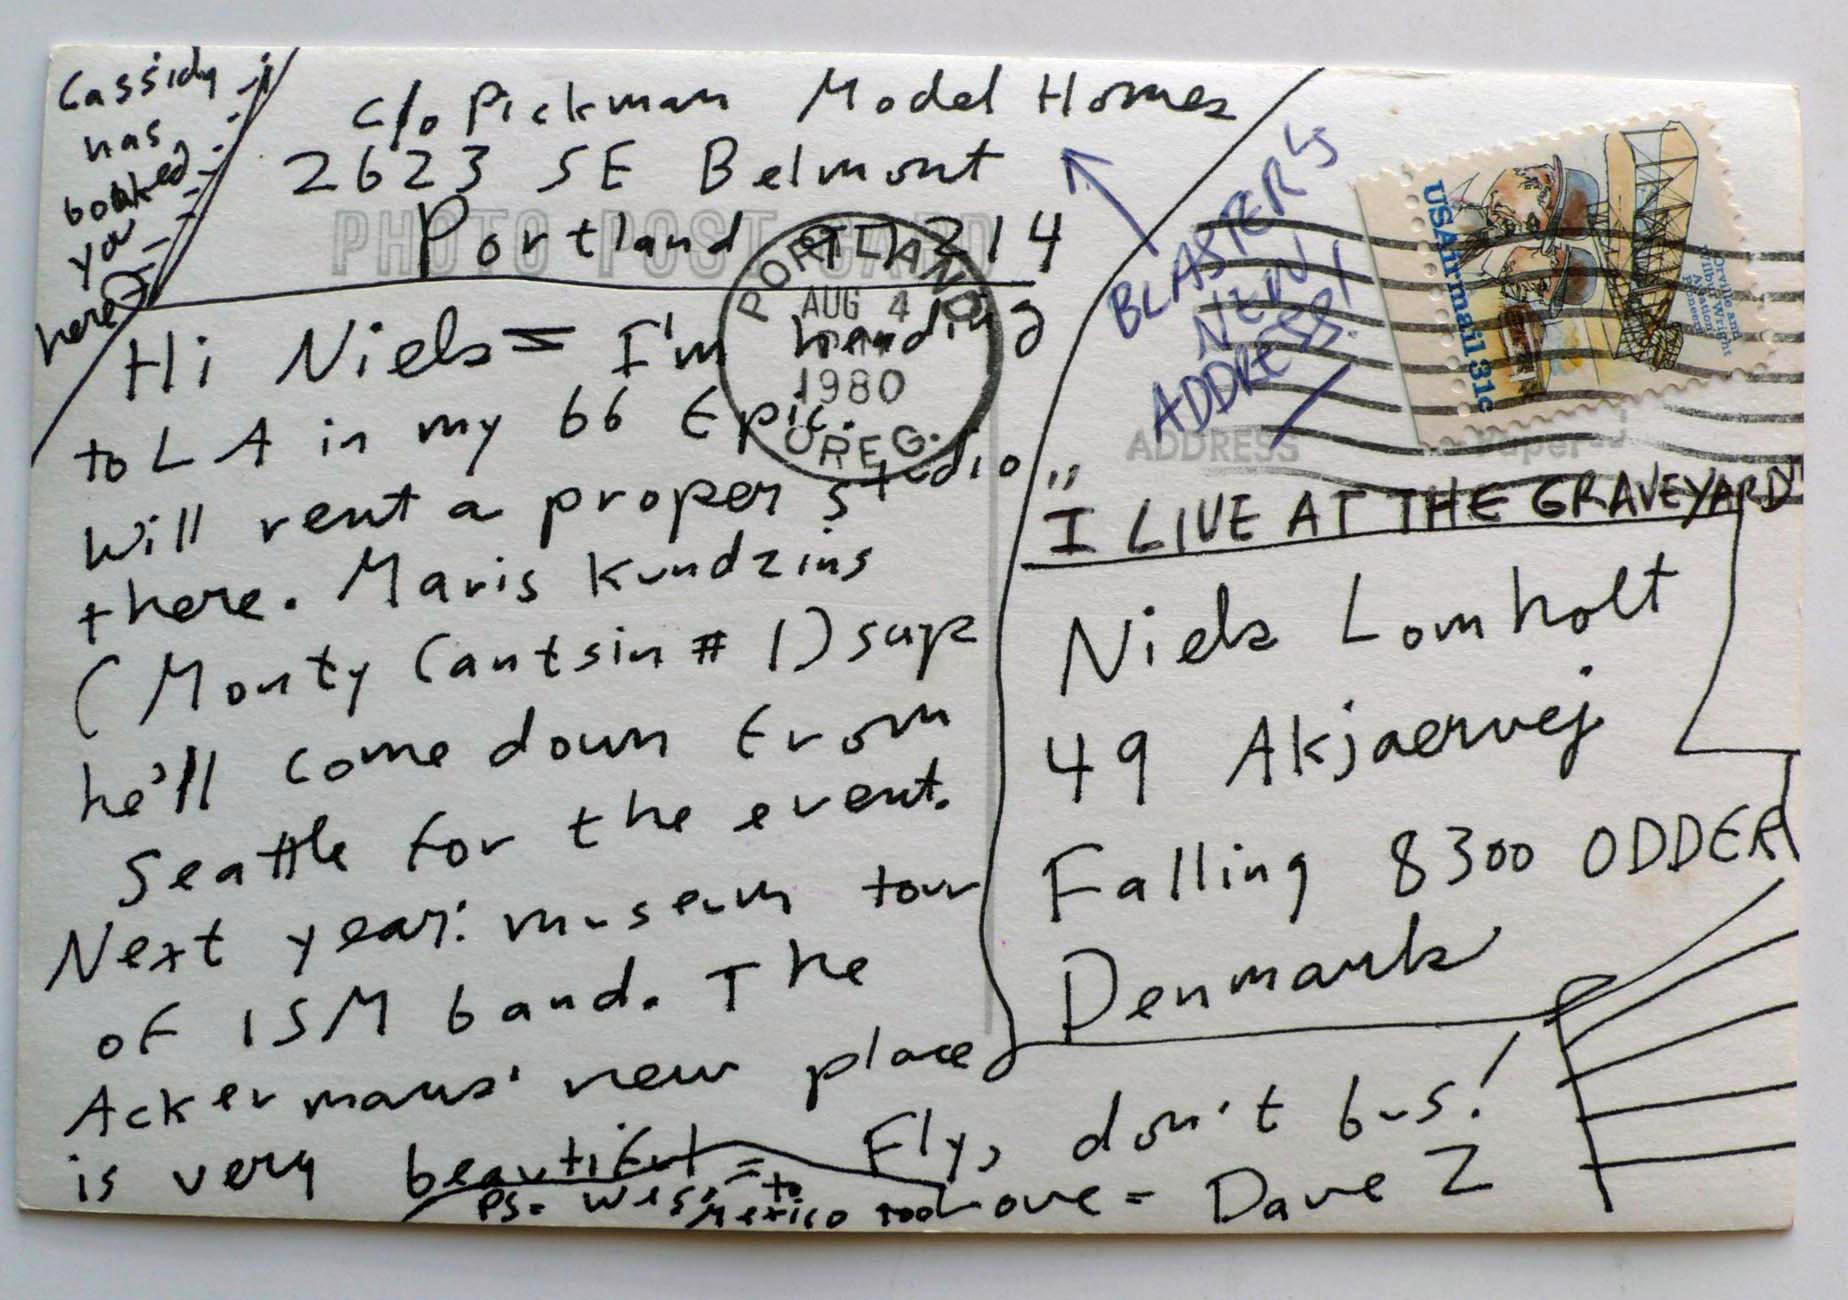 Cassidy
has
booked
you
here
c/o Pickman Model Homes
2623 SE Belmont
Portland 97214
PHOTO POST CARD
PORTLAND
AUG 4
1980
OREG.
Hi Niels = I'm heading
to LA in my 66 Epic.
Will rent a proper studio
there. Maris Kundzins
(Monty Cantsin # 1) says
he'll come down from
Seattle for the event.
Next year: museum tour
of ISM band. The
Ackermans' new place
is very beautiful =
Fly, don't bus!
Love = Dave Z
PS= to
Mexico too
BLASTER'S
NEW
ADDRESS!
USAirmail 31c
Orville and
Wilbur Wright
Aviation
Pioneers
ADDRESS
Paper
"I LIVE AT THE GRAVEYARD"
Niels Lomholt
49 Akjaervej
Falling 8300 ODDER
Denmark